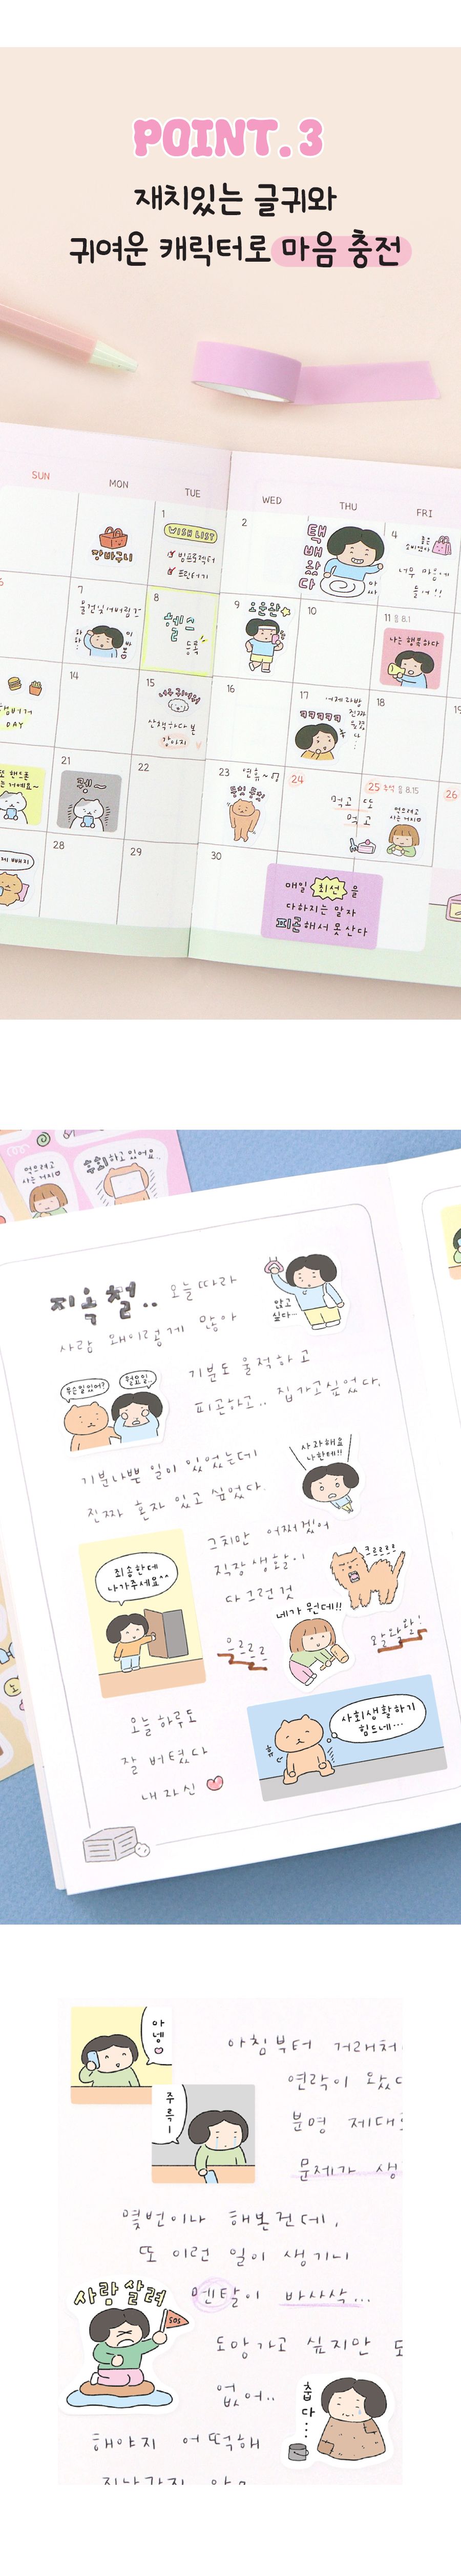 POINT.3
재치있는 글귀와
귀여운 캐릭터로 마음 충전
SUN
MON
TUE
WED
THU
FRI
장바구니
1
WISH LIST
빔프로젝터
프린터기
2
택배왔다
아싸
4
너무 마음에
들어!!
6
7
물건잃어버림?
8
헬스
등록
9
오운완
10
11 음 8.1
나는 행복하다
DAY
14
15
산책하다 본
강아지
16
17
어제 라방
진짜
ㅋㅋㅋㅋㅋ
18
19
21
휑~
22
23
연휴~
24
먹고 또
먹고
25 추석 음 8.15
먹으려고
사는 거지
26
28
29
30
매일 최선을
다하지는 말자
피곤해서 못 산다
먹으려고
사는거지
후회하고 있어요..
지옥철.. 오늘따라
사람 왜이렇게 많아
앉고
싶다...
무슨일있어?
월요일...
기분도 울적하고
피곤하고.. 집가고싶었다.
기분나쁜 일이 있었는데
진짜 혼자 있고 싶었다.
사라해요
나한테!!
죄송한데
나가주세요^^
그치만 어쩌겠어
직장생활이
다 그런것
크르르르
네가 뭔데!!
으르르르
왈왈왈!
사회생활하기
힘드네...
휴
오늘 하루도
잘 버텼다
내 자신
아넹
주륵-
아침부터 거래처
연락이 왔
분명 제대
문제가 생
몇번이나 해본건데,
또 이런 일이 생기니
멘탈이 바사삭...
사람 살려
SOS
도망가고 싶지만 도
없어..
춥다...
해야지 어떡해